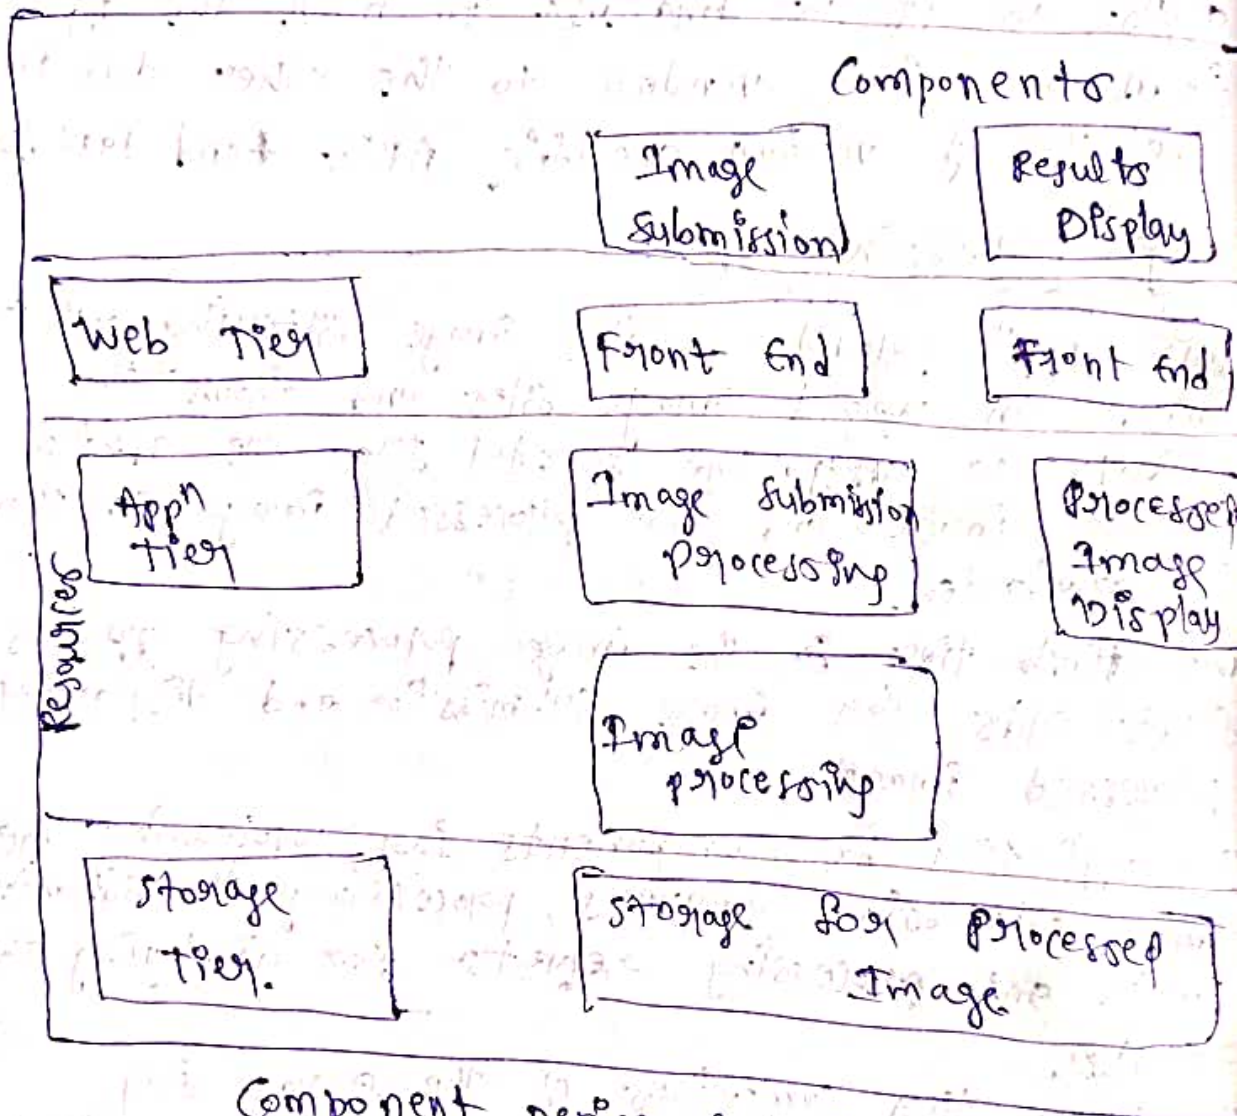 Components.
Image
Submission
Results
Display
Web Tier
Front End
Front End
Appⁿ
Tier
Image Submission
processing
Processed
Image
Display
Resources
Image
processing
Storage
Tier.
Storage for Processed
Image
Component